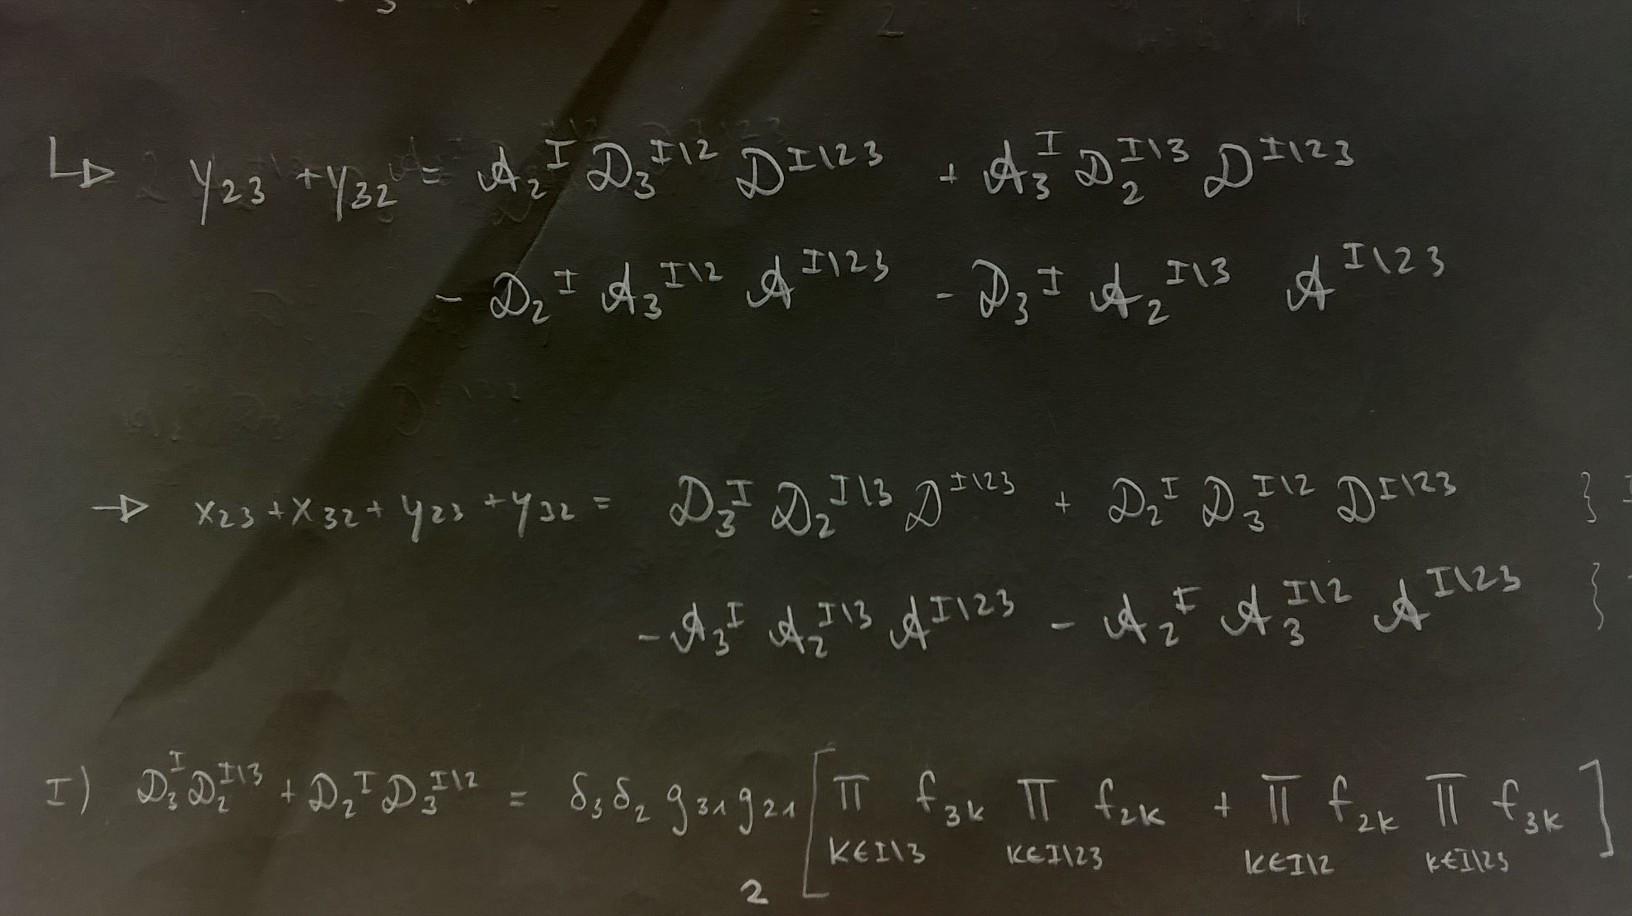 ↳ y₂₃ + y₃₂ = 𝒜₂ᴵ 𝒟₃ᴵ\² 𝒟ᴵ\²³ + 𝒜₃ᴵ 𝒟₂ᴵ\³ 𝒟ᴵ\²³
- 𝒟₂ᴵ 𝒜₃ᴵ\² 𝒜ᴵ\²³ - 𝒟₃ᴵ 𝒜₂ᴵ\³ 𝒜ᴵ\²³
→ x₂₃ + x₃₂ + y₂₃ + y₃₂ = 𝒟₃ᴵ 𝒟₂ᴵ\³ 𝒟ᴵ\²³ + 𝒟₂ᴵ 𝒟₃ᴵ\² 𝒟ᴵ\²³ }
- 𝒜₃ᴵ 𝒜₂ᴵ\³ 𝒜ᴵ\²³ - 𝒜₂ᴵ 𝒜₃ᴵ\² 𝒜ᴵ\²³ }
I) 𝒟₃ᴵ 𝒟₂ᴵ\³ + 𝒟₂ᴵ 𝒟₃ᴵ\² = δ₃ δ₂ g₃₁ g₂₁ [ Π f₃ₖ Π f₂ₖ + Π f₂ₖ Π f₃ₖ ]
K∈I\3 K∈I\23 K∈I\2 K∈I\23
2